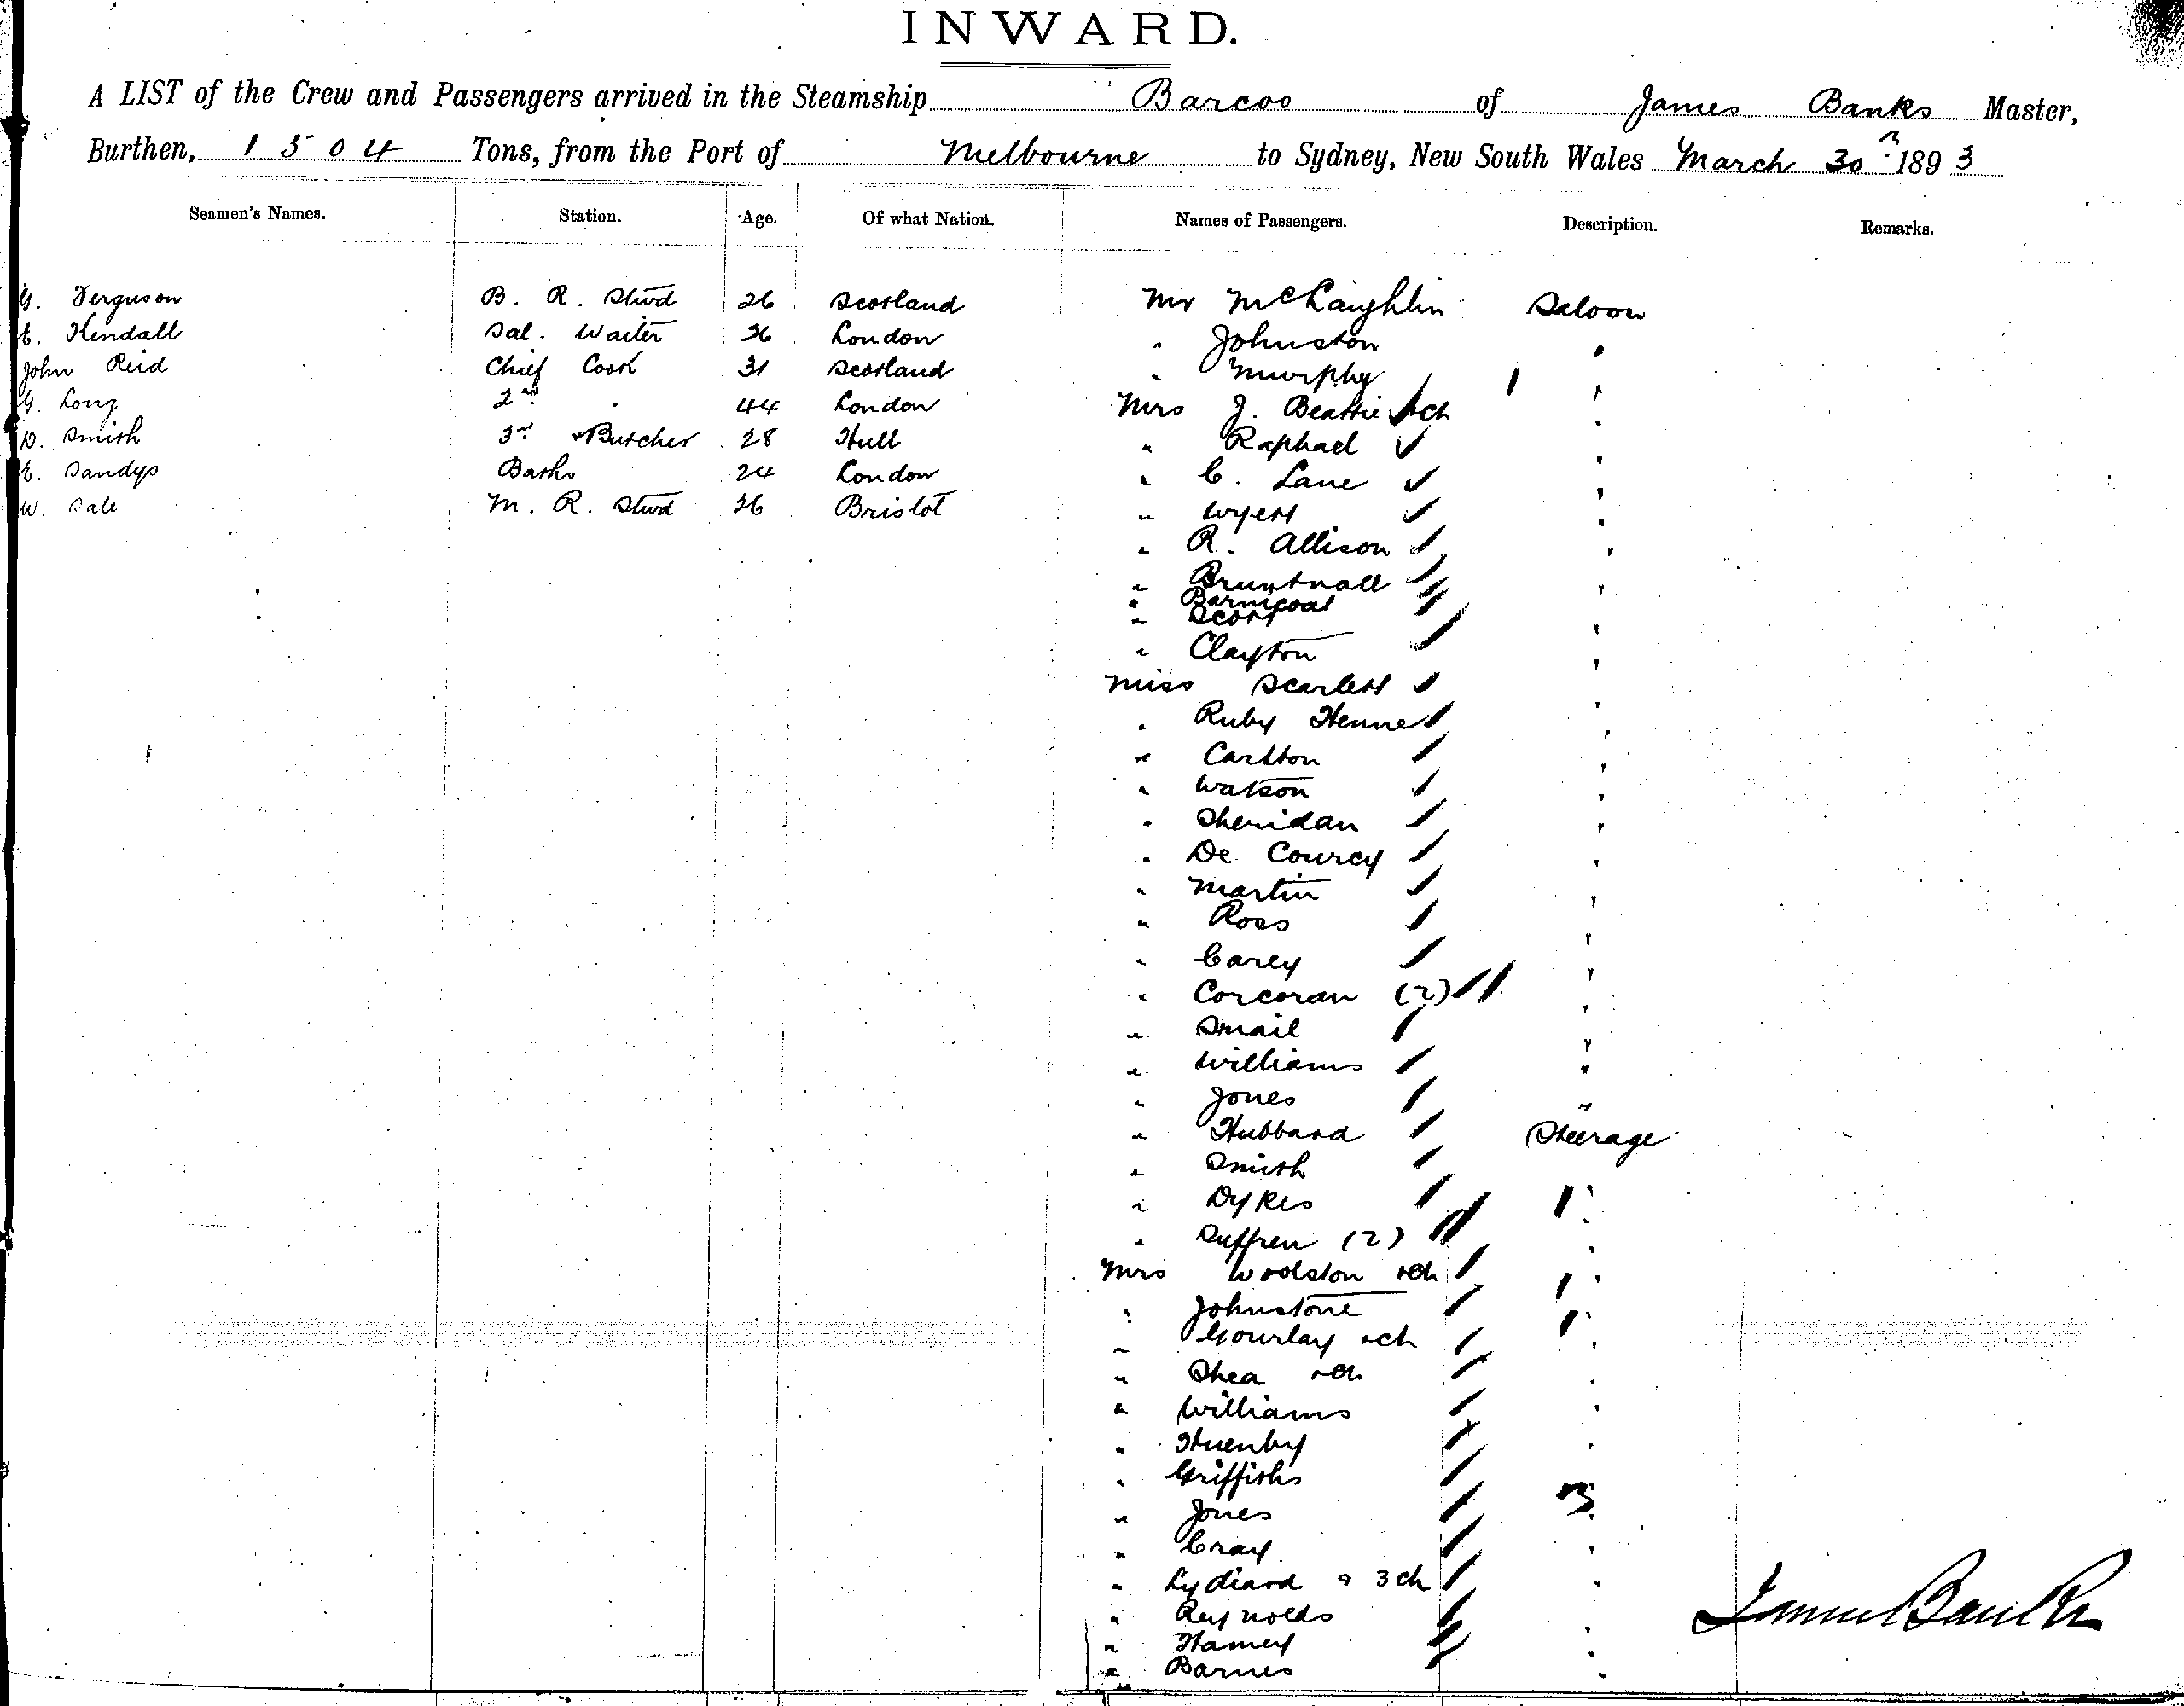 INWARD.
A LIST of the Crew and Passengers arrived in the Steamship Barcoo of James Banks Master,
Burthen, 1504 Tons, from the Port of Melbourne to Sydney, New South Wales March 30th 1893
Seamen's Names. Station. Age. Of what Nation. Names of Passengers. Description. Remarks.
G. Ferguson B. R. Stwd 26 Scotland Mr McLaughlin Saloon
E. Kendall Sal. Waiter 26 London " Johnston "
John Reid Chief Cook 31 Scotland " Murphy "
G. Long 2nd " 44 London Mrs J. Beattie + ch "
D. Smith 3rd + Butcher 28 Hull " Raphael "
E. Sandys Baths 24 London " C. Lane "
W. Sale M. R. Stwd 26 Bristol " Wyett "
" R. Allison "
" Bruntnall "
" Barnicoat
" Scott "
" Clayton "
Miss Scarlett "
" Ruby Henne "
" Carlton "
" Watson "
" Sheridan "
" De Courcy "
" Martin "
" Ross "
" Carey "
" Corcoran (2) "
" Smail "
" Williams "
" Jones "
" Hubbard Steerage
" Smith
" Dykes "
" Suffren (2) "
Mrs Woolston + ch "
" Johnstone "
" Gourlay + ch "
" Shea + ch "
" Williams "
" Huenby "
" Griffiths
" Jones "
" Cray "
" Lydiard & 3 ch "
" Reynolds "
" Hamey "
" Barnes "
James Banks